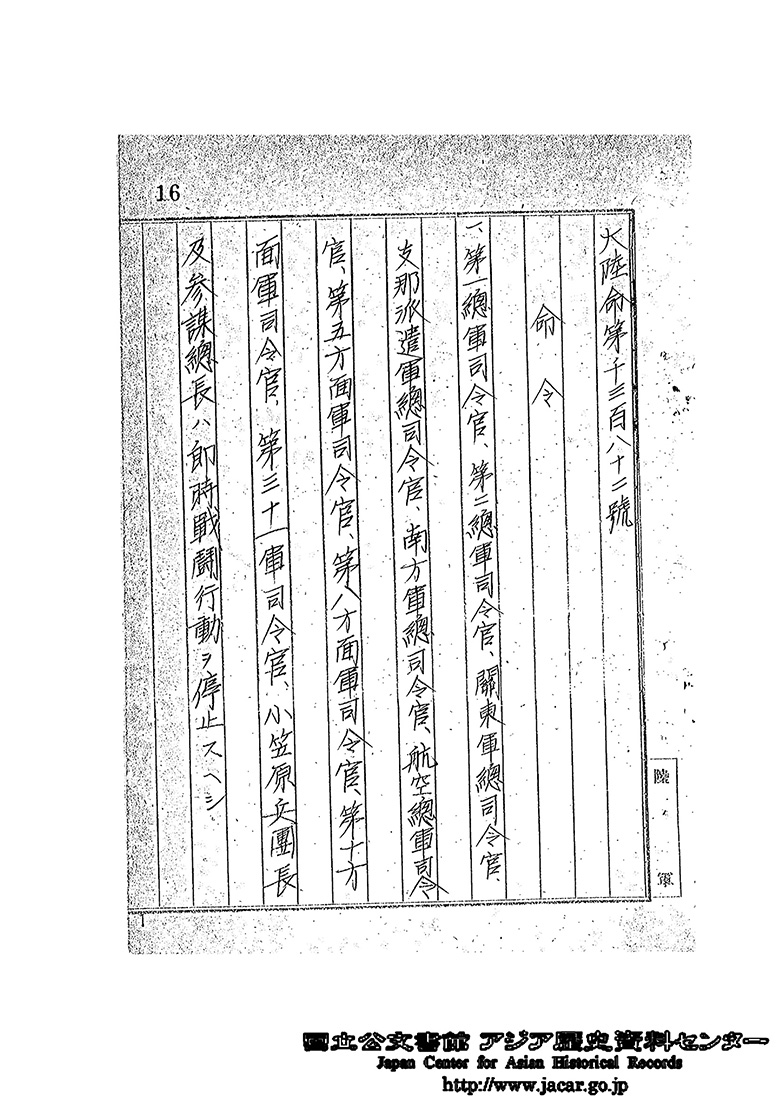 16
大陸命第千三百八十二號
命令
一、第一總軍司令官、第二總軍司令官、關東軍總司令官、
支那派遣軍總司令官、南方軍總司令官、航空總軍司令
官、第五方面軍司令官、第八方面軍司令官、第十方
面軍司令官、第三十一軍司令官、小笠原兵團長
及參謀總長ハ即時戰鬪行動ヲ停止スヘシ
陸軍
1
國立公文書館 アジア歴史資料センター
Japan Center for Asian Historical Records
http://www.jacar.go.jp